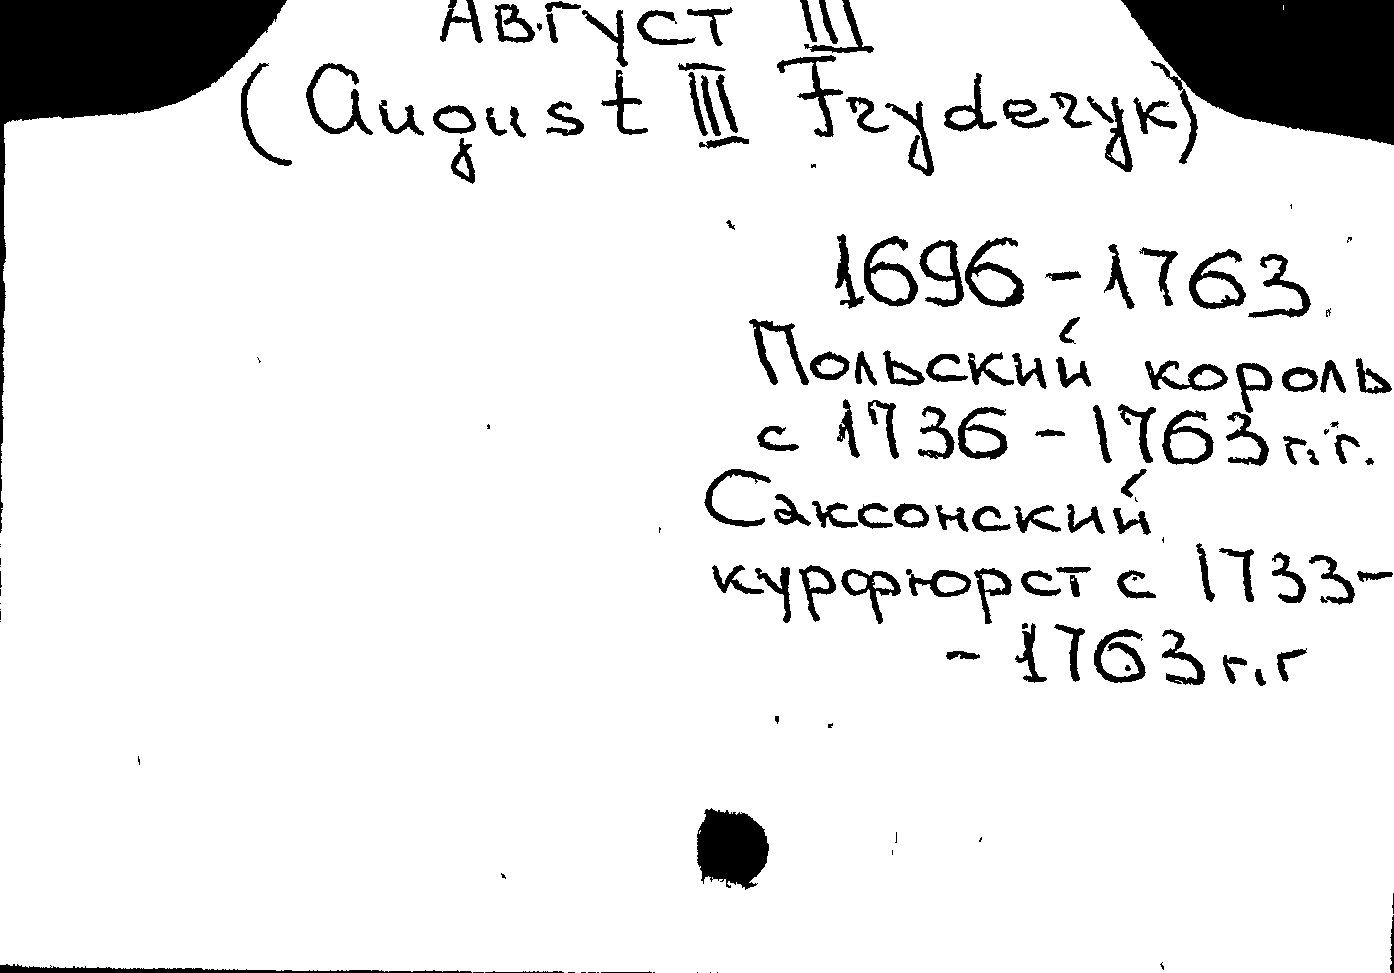 Август III
(August III Fryderyk)
1696-1763
Польский король
с 1736-1763 г.г.
Саксонский
курфюрст с 1733-
- 1763 г.г